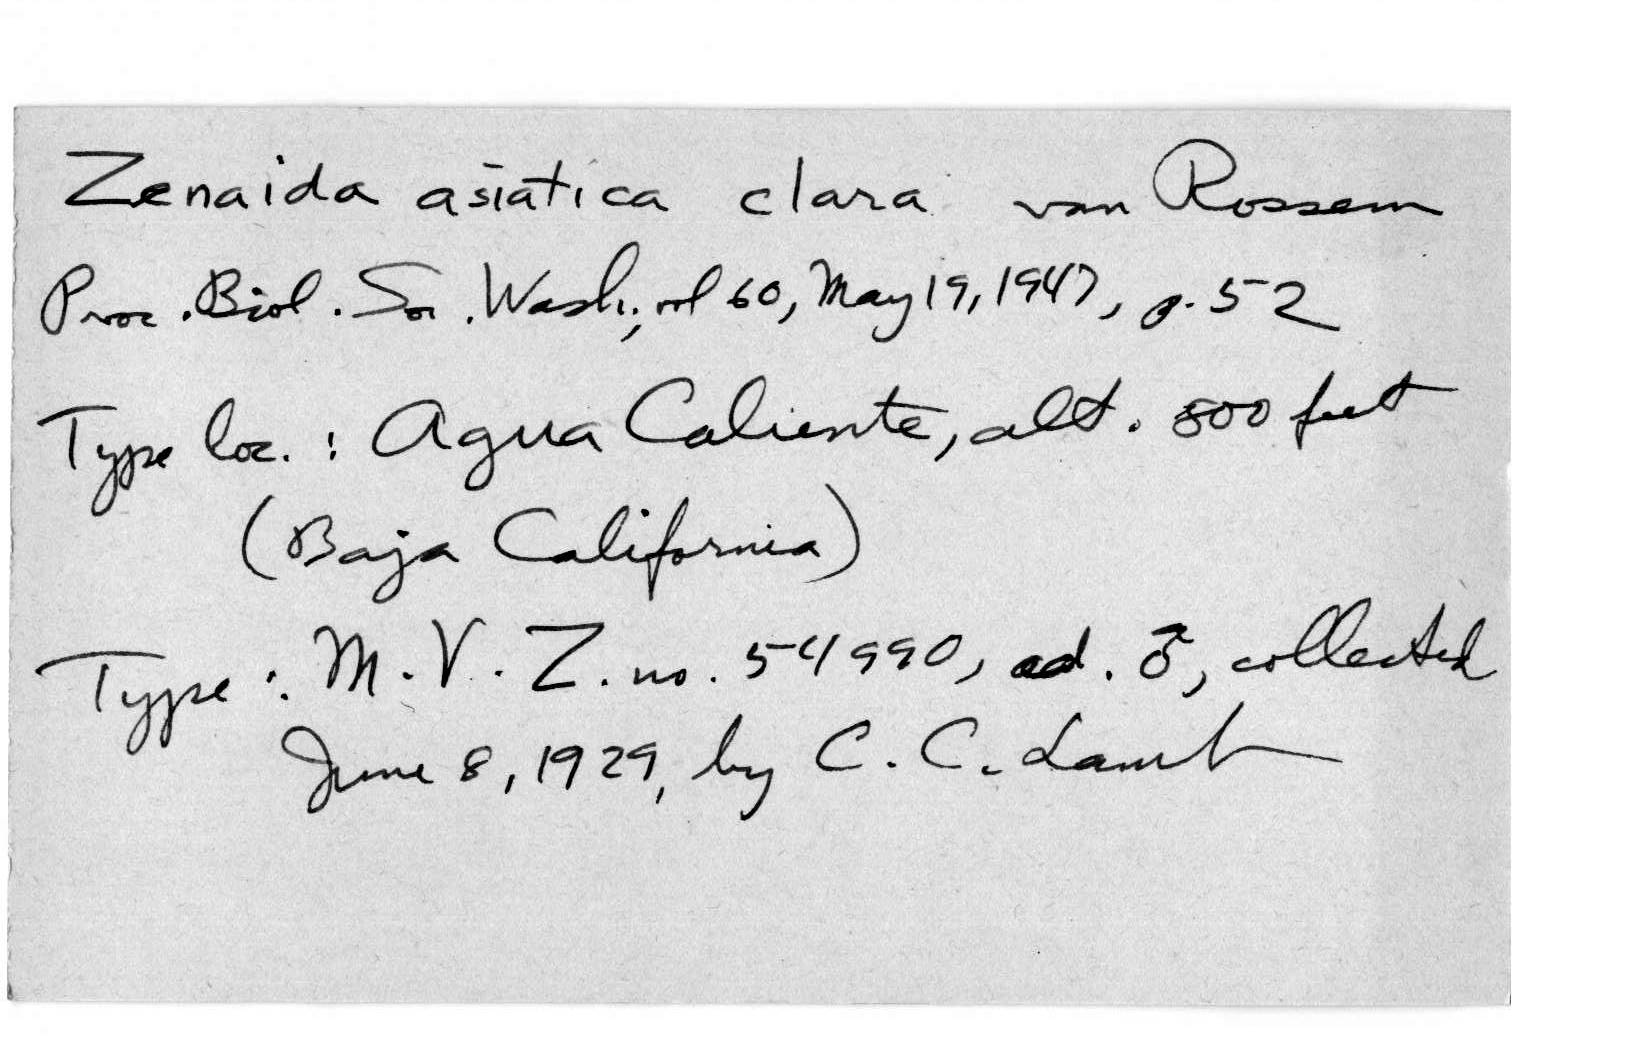 Zenaida asiatica clara van Rossem
Proc. Biol. Soc. Wash., vol 60, May 19, 1947, p. 52
Type loc. : Agua Caliente, alt. 800 feet
(Baja California)
Type : M. V. Z. no. 54990, ad. ♂, collected
June 8, 1929, by C. C. Lamb